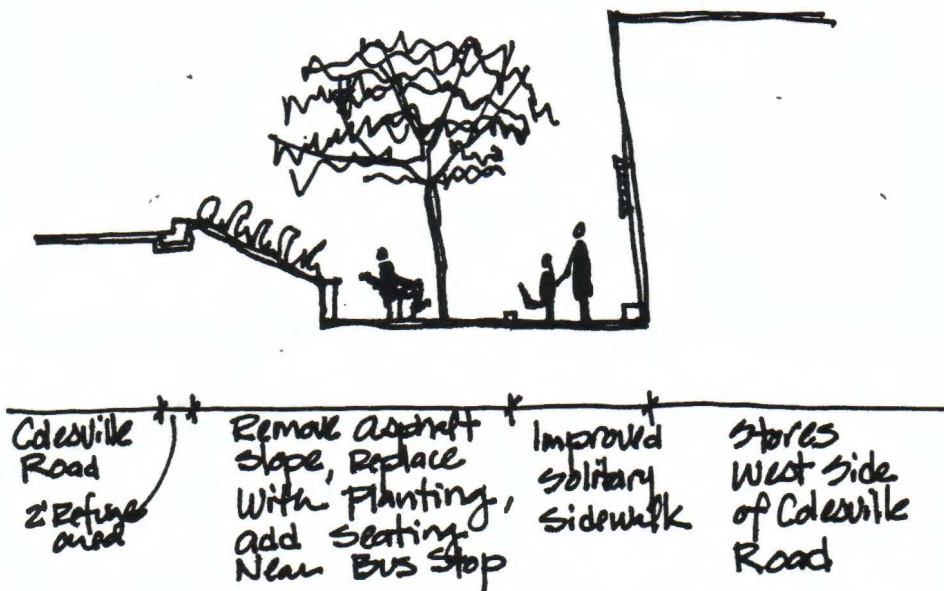 Colesville
Road
2' Refuge
area
Remove asphalt
Slope, Replace
With Planting,
add Seating
Near Bus Stop
Improved
Solitary
Sidewalk
Stores
West Side
of Colesville
Road